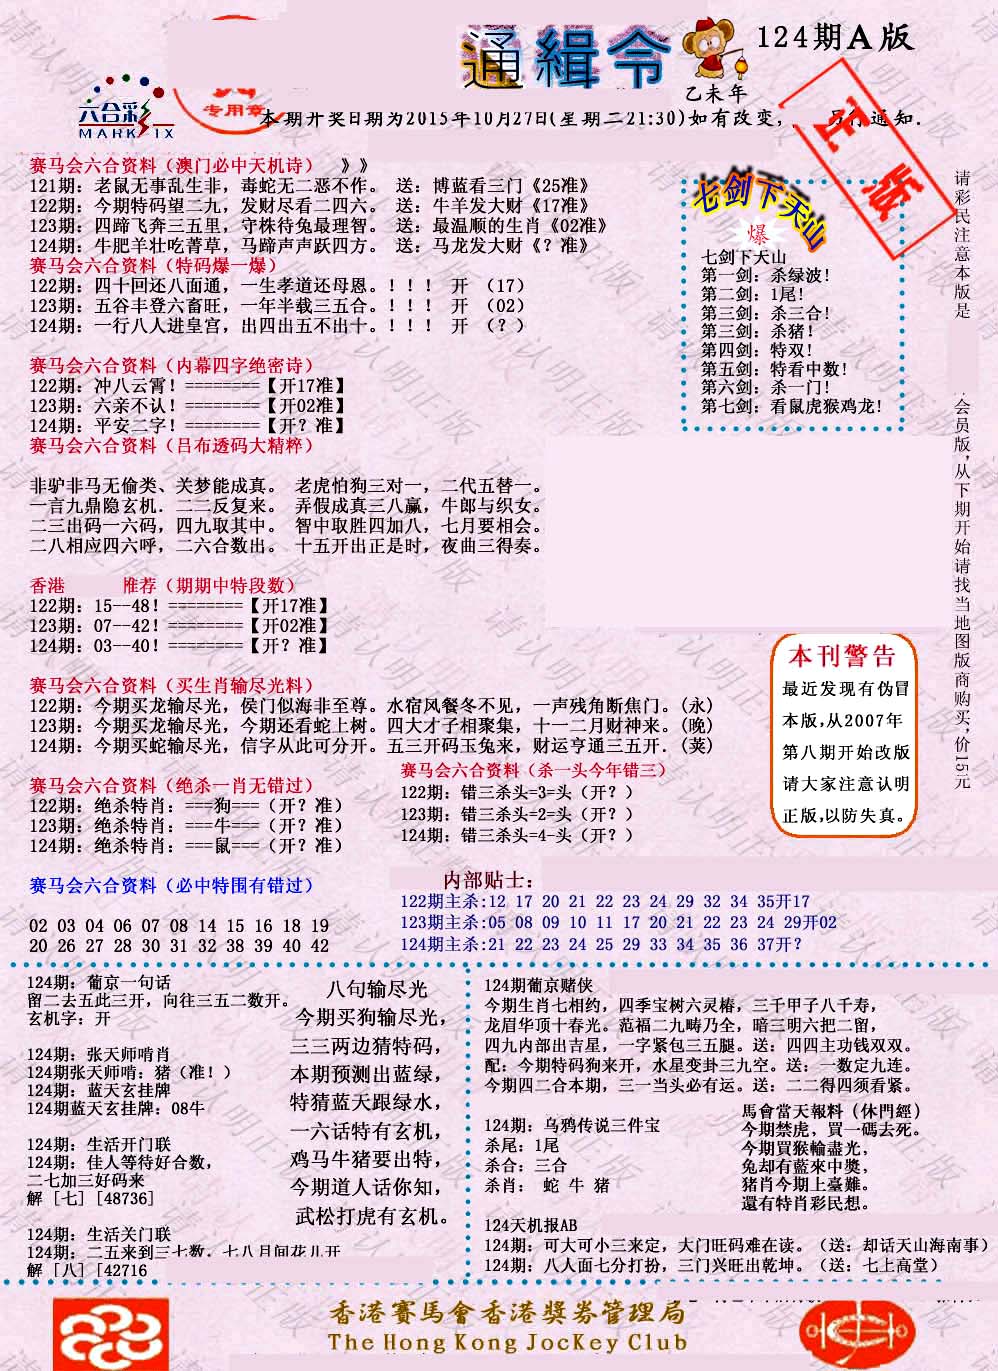 通緝令
124期A版
乙未年
六合彩
MARK SIX
专用章
本期开奖日期为2015年10月27日(星期二21:30)如有改变,
通知.
赛马会六合资料（澳门必中天机诗） 》》
121期: 老鼠无事乱生非，毒蛇无二恶不作。 送: 博蓝看三门《25准》
122期: 今期特码望二九，发财尽看二四六。 送: 牛羊发大财《17准》
123期: 四蹄飞奔三五里，守株待兔最理智。 送: 最温顺的生肖《02准》
124期: 牛肥羊壮吃菁草，马蹄声声跃四方。 送: 马龙发大财《？准》
赛马会六合资料（特码爆一爆）
122期: 四十回还八面通，一生孝道还母恩。！！！ 开 （17）
123期: 五谷丰登六畜旺，一年半载三五合。！！！ 开 （02）
124期: 一行八人进皇宫，出四出五不出十。！！！ 开 （？）
赛马会六合资料（内幕四字绝密诗）
122期: 冲八云霄！========【开17准】
123期: 六亲不认！========【开02准】
124期: 平安二字！========【开？准】
赛马会六合资料（吕布透码大精粹）
非驴非马无偷类、关梦能成真。 老虎怕狗三对一，二代五替一。
一言九鼎隐玄机．二二反复来。 弄假成真三八赢，牛郎与织女。
二三出码一六码，四九取其中。 智中取胜四加八，七月要相会。
二八相应四六呼，二六合数出。 十五开出正是时，夜曲三得奏。
香港 推荐（期期中特段数）
122期: 15--48！========【开17准】
123期: 07--42！========【开02准】
124期: 03--40！========【开？准】
赛马会六合资料（买生肖输尽光料）
122期: 今期买龙输尽光，侯门似海非至尊。水宿风餐冬不见，一声残角断焦门。(永)
123期: 今期买龙输尽光，今期还看蛇上树。四大才子相聚集，十一二月财神来。(晚)
124期: 今期买蛇输尽光，信字从此可分开。五三开码玉兔来，财运亨通三五开．(荚)
赛马会六合资料（绝杀一肖无错过）
122期: 绝杀特肖: ===狗===（开？准）
123期: 绝杀特肖: ===牛===（开？准）
124期: 绝杀特肖: ===鼠===（开？准）
赛马会六合资料（杀一头今年错三）
122期: 错三杀头=3=头（开？）
123期: 错三杀头=2=头（开？）
124期: 错三杀头=4-头（开？）
赛马会六合资料（必中特围有错过）
02 03 04 06 07 08 14 15 16 18 19
20 26 27 28 30 31 32 38 39 40 42
内部贴士:
122期主杀:12 17 20 21 22 23 24 29 32 34 35开17
123期主杀:05 08 09 10 11 17 20 21 22 23 24 29开02
124期主杀:21 22 23 24 25 29 33 34 35 36 37开？
七剑下天山
爆
七剑下天山
第一剑: 杀绿波!
第二剑: 1尾!
第三剑: 杀三合!
第三剑: 杀猪!
第四剑: 特双!
第五剑: 特看中数!
第六剑: 杀一门!
第七剑: 看鼠虎猴鸡龙!
请彩民注意本版是
会员版,从下期开始请找当地图版商购买,价15元
本刊警告
最近发现有伪冒
本版,从2007年
第八期开始改版
请大家注意认明
正版,以防失真。
124期: 葡京一句话
留二去五此三开，向往三五二数开。
玄机字: 开
124期: 张天师啃肖
124期张天师啃: 猪（准！）
124期: 蓝天玄挂牌
124期蓝天玄挂牌: 08牛
124期: 生活开门联
124期: 佳人等待好合数，
二七加三好码来
解 [七] [48736]
124期: 生活关门联
124期: 二五来到三七数，七八月间花儿开
解 [八] [42716
八句输尽光
今期买狗输尽光，
三三两边猜特码，
本期预测出蓝绿，
特猜蓝天跟绿水，
一六话特有玄机，
鸡马牛猪要出特，
今期道人话你知，
武松打虎有玄机。
124期葡京赌侠
今期生肖七相约，四季宝树六灵椿，三千甲子八千寿，
龙眉华顶十春光。范福二九畴乃全，暗三明六把二留，
四九内部出吉星，一字紧包三五腿。送: 四四主功钱双双。
配: 今期特码狗来开，水星变卦三九空。送: 一数定九连。
今期四二合本期，三一当头必有运。送: 二二得四须看紧。
124期: 乌鸦传说三件宝
杀尾: 1尾
杀合: 三合
杀肖: 蛇 牛 猪
馬會當天報料（休門經）
今期禁虎，買一碼去死。
今期買猴輸盡光，
兔却有藍來中獎，
豬肖今期上臺難。
還有特肖彩民想。
124天机报AB
124期: 可大可小三来定，大门旺码难在读。（送: 却话天山海南事）
124期: 八人面七分打扮，三门兴旺出乾坤。（送: 七上高堂）
香港賽馬會香港獎券管理局
The Hong Kong JocKey Club